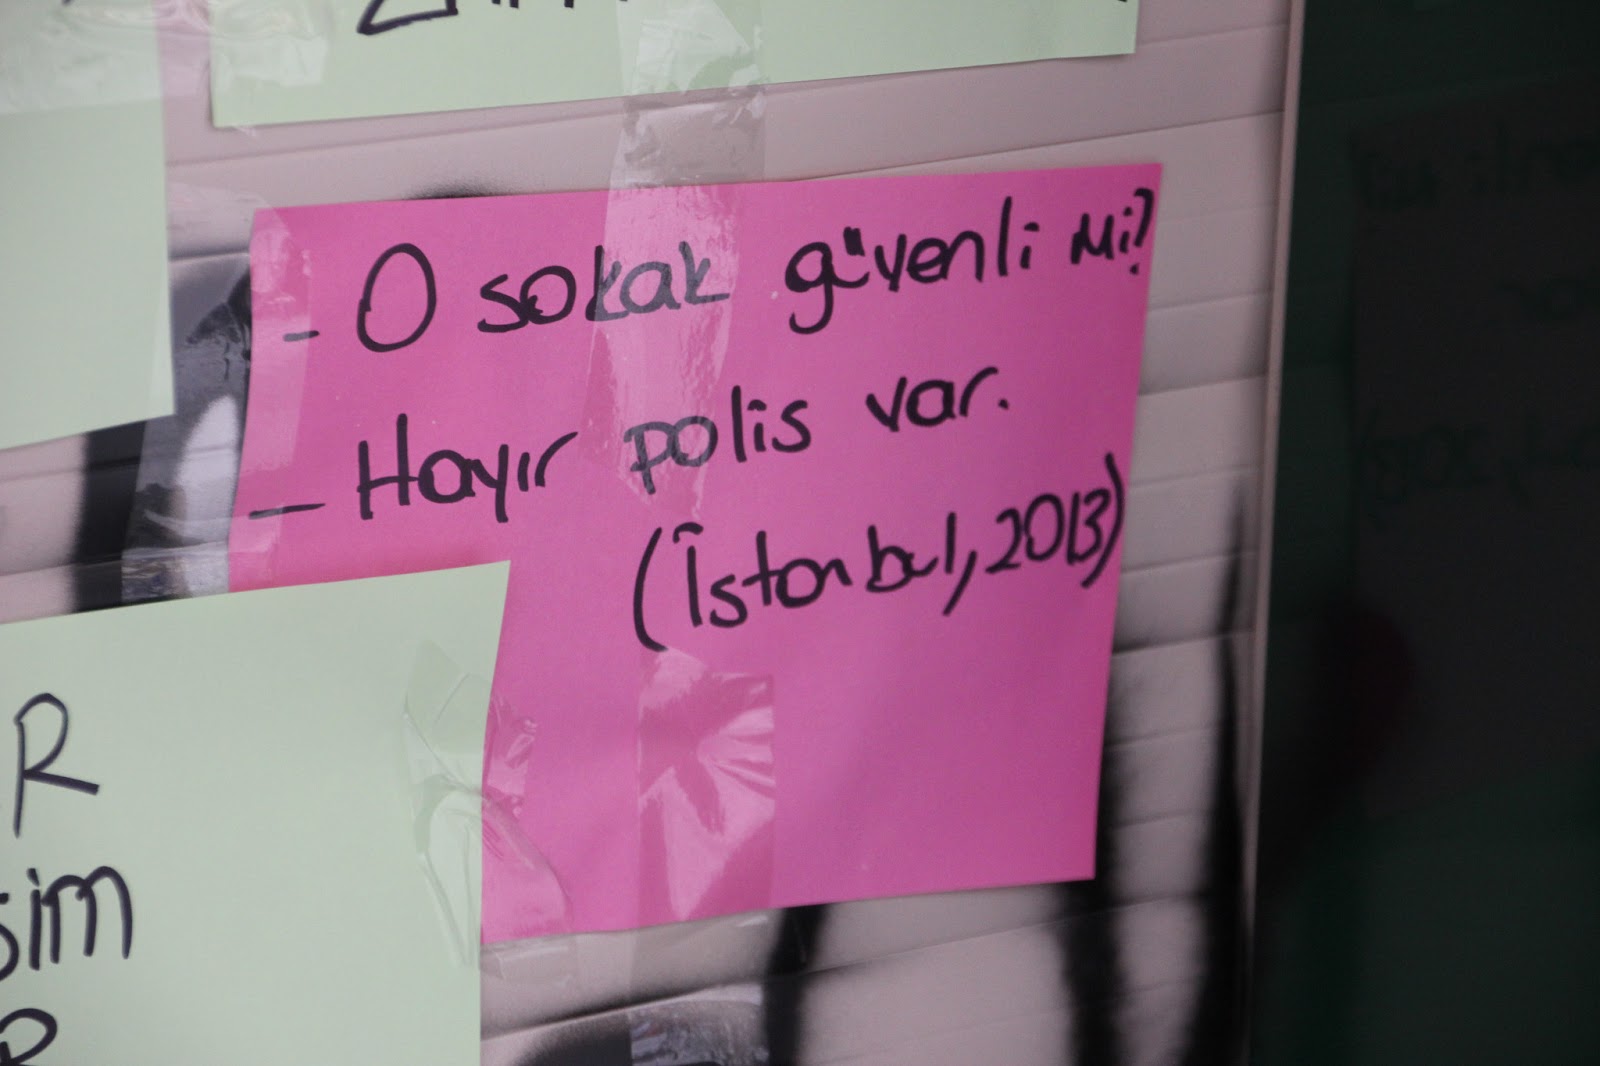 - O sokak güvenli mi?
- Hayır polis var.
(İstanbul, 2013)
R
sim
R